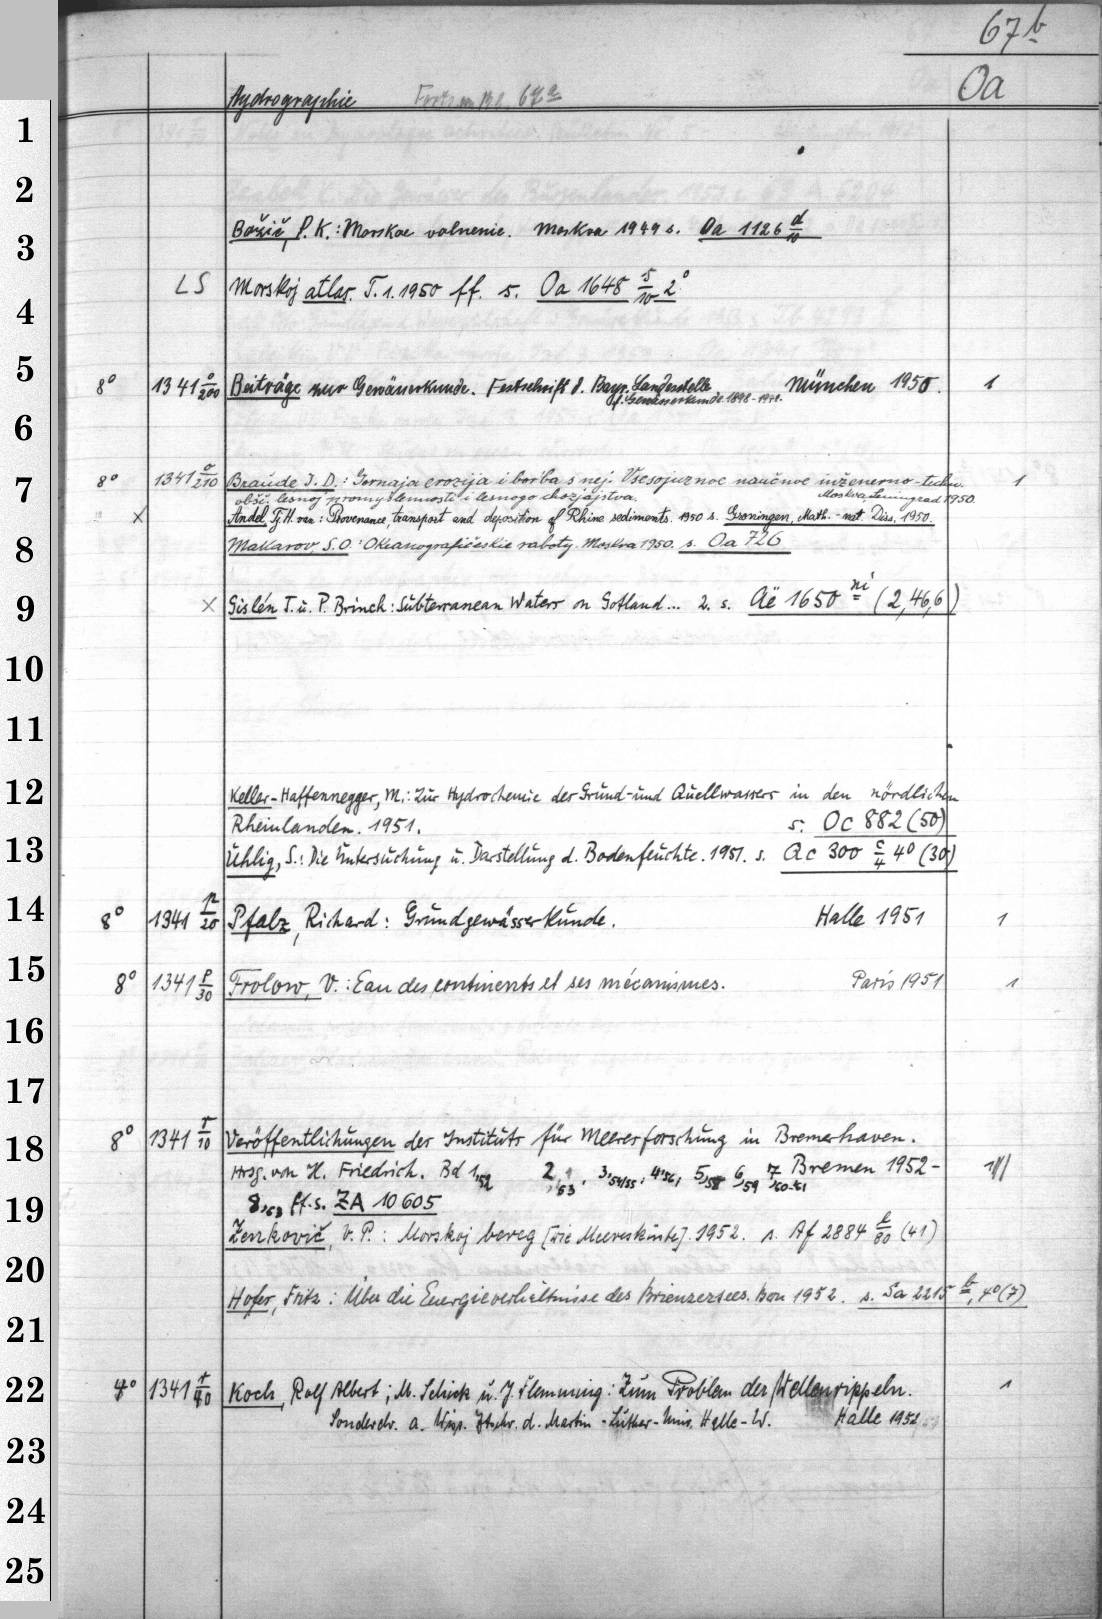 67 b
Oa
Hydrographie Forts. von Bl. 67 a
1
2
3 Božič, P. K.: Morskoe volnenie. Moskva 1949 s. Oa 1126 d/10
4 LS Morskoj atlas. T. 1. 1950 ff. s. Oa 1648 5/10 2°
5 8° 1341 o/200 Beiträge zur Gewässerkunde. Festschrift d. Bayr. Landesstelle München 1950. 1
f. Gewässerkunde 1898-1948.
6
7 8° 1341 o/210 Braude I. D.: Gornaja erozija i borba s nej. Vsesojuznoe naučnoe inženerno-techn. 1
obšč. lesnoj promyšlennosti i lesnogo chozjajstva. Moskva, Leningrad 1950.
x Andel, Tj. H. van: Provenance, transport and deposition of Rhine sediments. 1950 s. Groningen, Math.-nat. Diss. 1950.
8 Makarov, S. O.: Okeanografičeskie raboty. Moskva 1950. s. Oa 726
9 x Gislén T. u. P. Brinch: Subterranean Waters on Gotland... 2. s. Aë 1650 ni (2,46,6)
10
11
12 Keller-Haffennegger, M.: Zur Hydrochemie der Grund- und Quellwassers in den nördlichen
Rheinlanden. 1951. s. Oc 882 (50)
13 Uhlig, S.: Die Untersuchung u. Darstellung d. Bodenfeuchte. 1951. s. Ac 300 c/4 4° (30)
14 8° 1341 p/20 Pfalz, Richard: Grundgewässerkunde. Halle 1951 1
15 8° 1341 p/30 Frolow, V.: Eau des continents et ses mécanismes. Paris 1951 1
16
17
18 8° 1341 r/10 Veröffentlichungen des Instituts für Meeresforschung in Bremerhaven.
Hrsg. von H. Friedrich. Bd 1,52 2,53, 3,54/55, 4,56, 5,58 6,59 7,60-61 Bremen 1952-
19 8,63 ff. s. ZA 10605
Zenkovič, V. P.: Morskoj bereg [Die Meeresküste]. 1952. s. Af 2884 l/80 (41)
20 Hofer, Fritz: Über die Energieverhältnisse des Brienzersees. Bern 1952. s. Sa 2215 b, 4° (7)
21
22 4° 1341 r/40 Koch, Rolf Albert; M. Schick u. J. Flemming: Zum Problem der Wellenrippeln. 1
Sonderdr. a. Wiss. Ztschr. d. Martin-Luther-Univ. Halle-W. Halle 1952
23
24
25